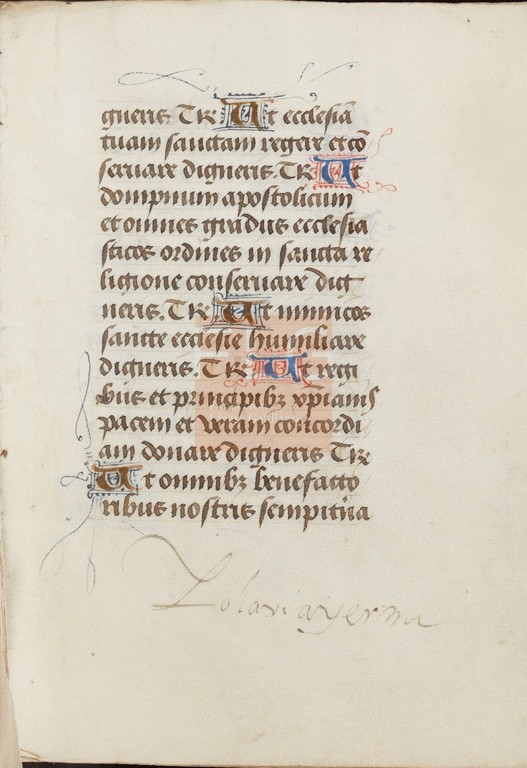 gneris. Te r̃. Ut ecclesiã
tuam sanctam regere et cõ
seruare digneris. Te r̃ Ut
dompnum apostolicum
et omnes gradus ecclesia
sticos ordines in sancta re
ligione conseruare dig
neris. Te r̃. Ut inimicos
sancte ecclesie humiliare
digneris. Te r̃ Ut regi
bus et principibꝫ xp̃ianis
pacem et veram concordi
am donare digneris Te r̃
Ut omnibꝫ benefacto
ribus nostris sempit̃na